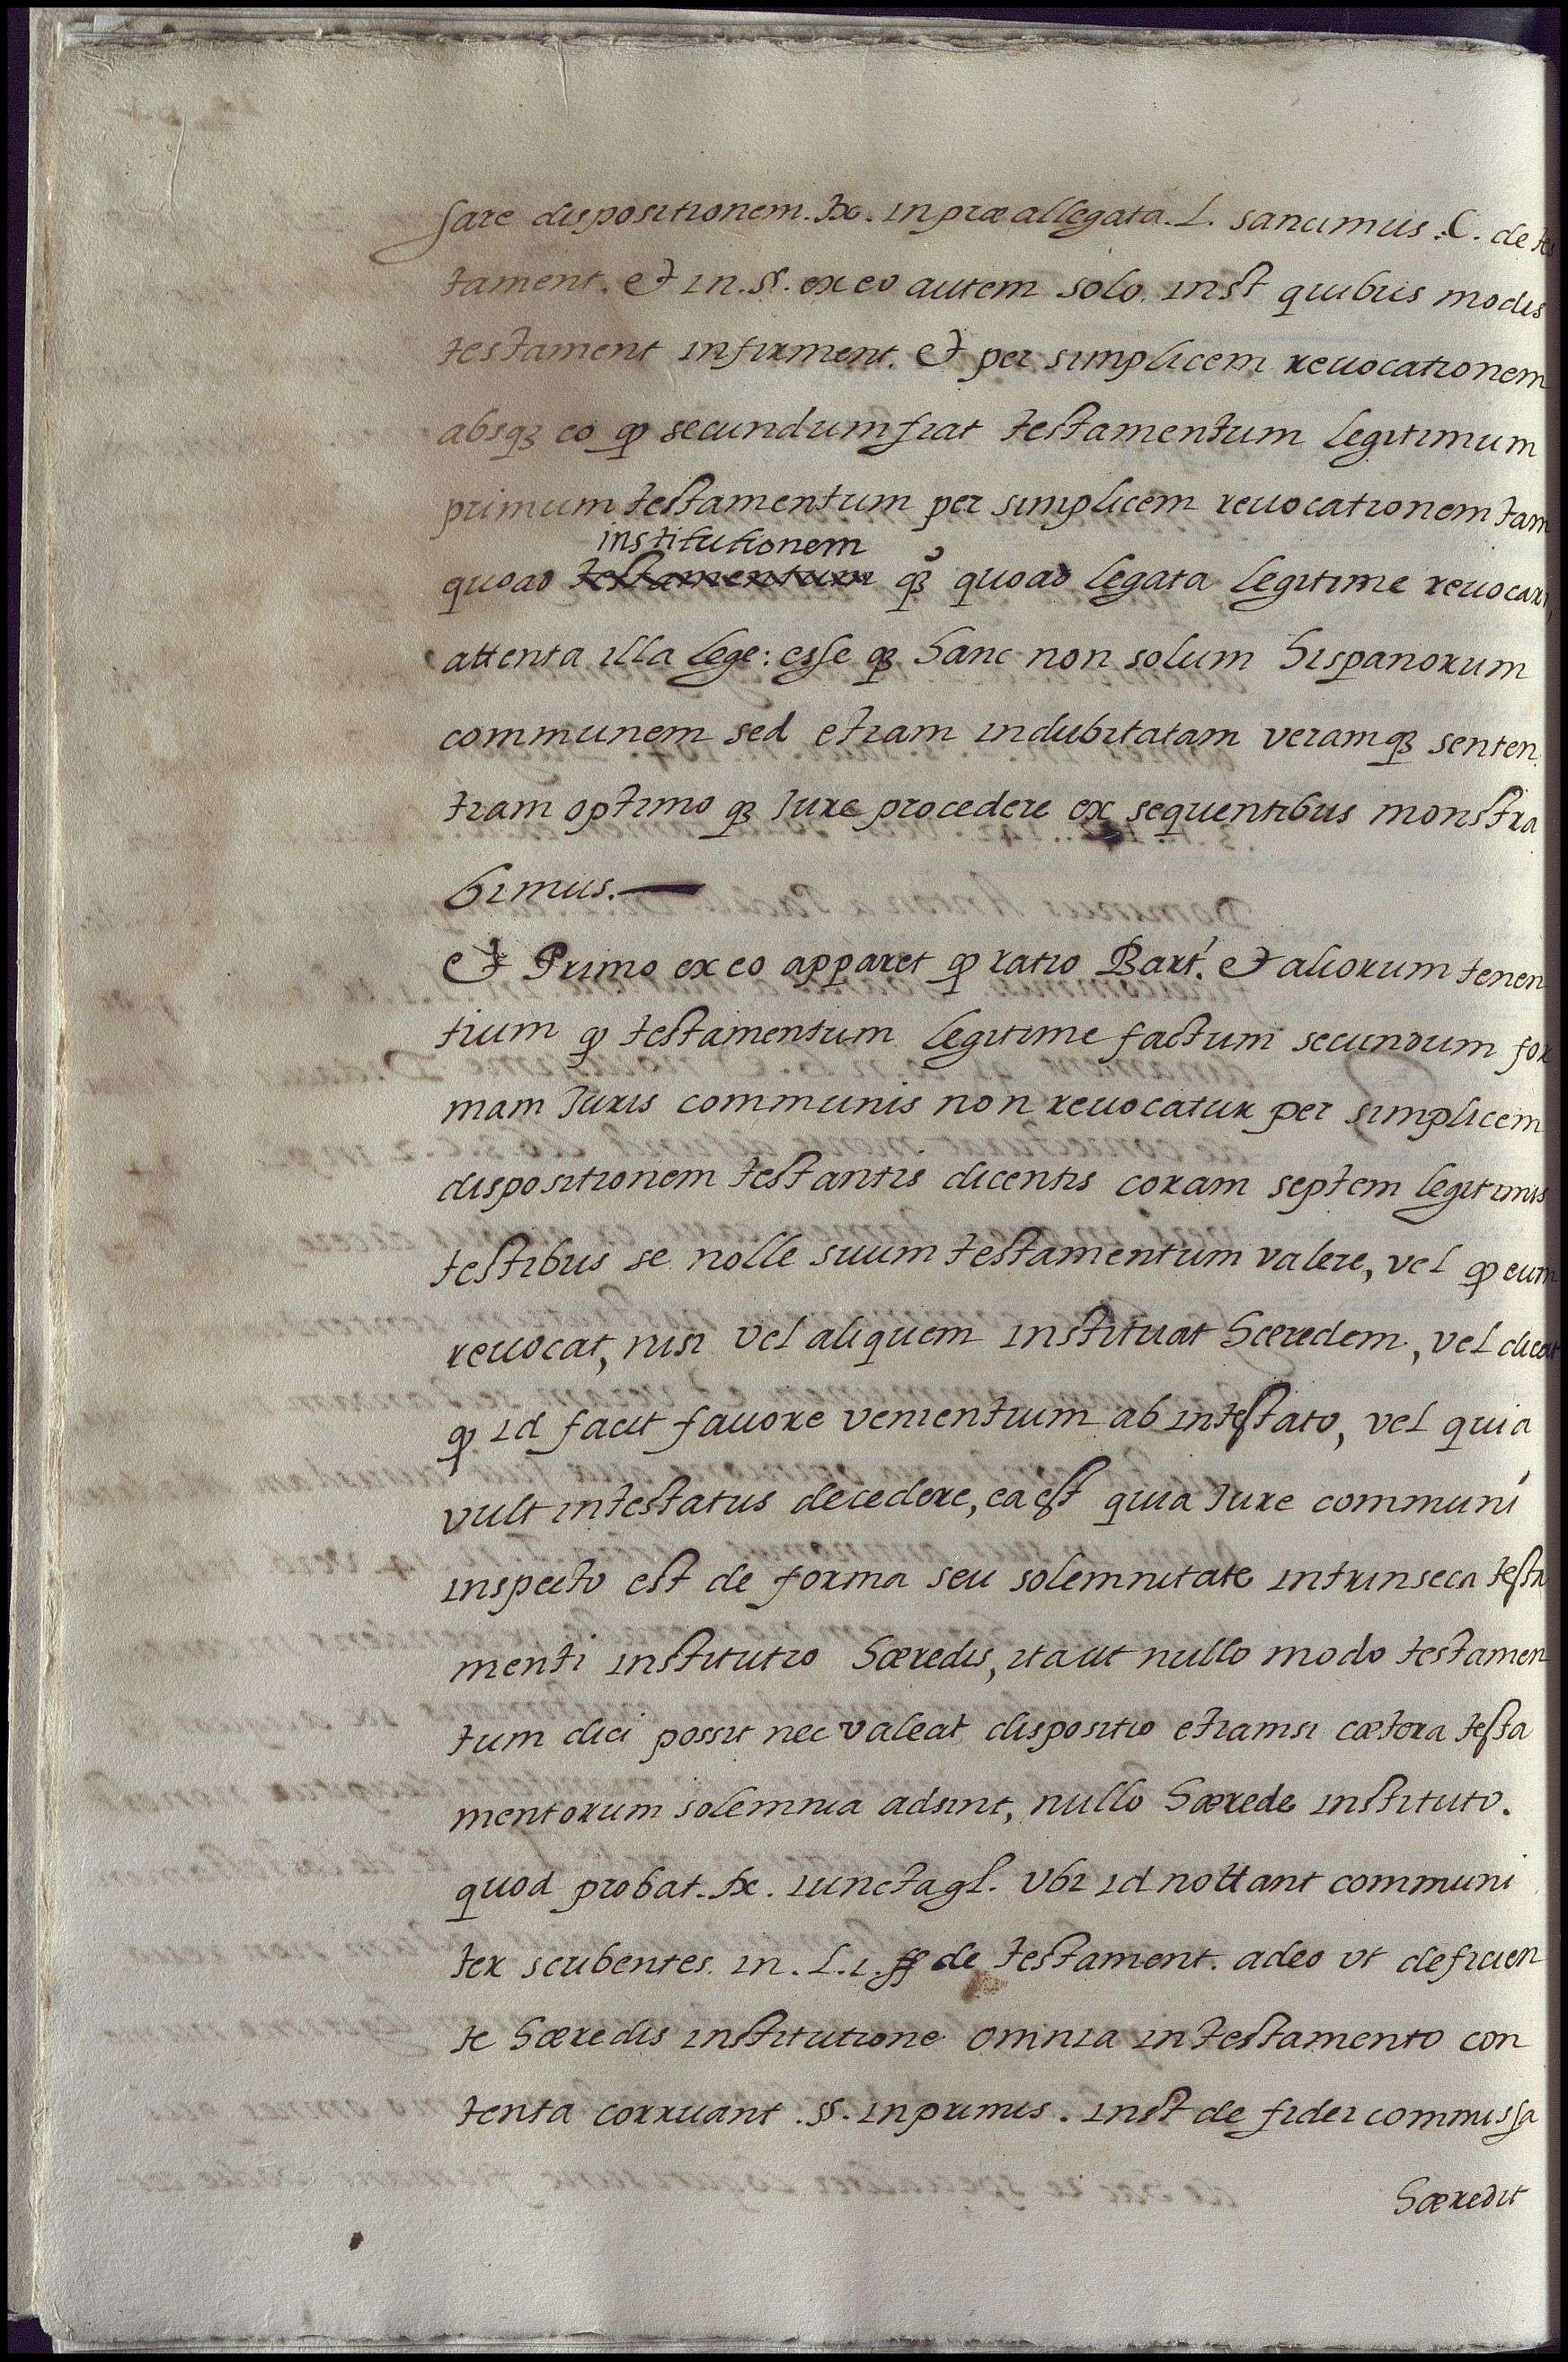 sare dispositionem. tx. in præallegata. L. sancimus. C. de tes
tament. et in. §. ex eo autem solo. inst quibus modis
testament infirment. et per simplicem reuocationem
absq3 eo qp secundum fiat testamentum legitimum
primum testamentum per simplicem reuocationem tam
institutionem
quoad testamentum q3 quoad legata legitime reuocari,
attenta illa lege: esse q3 hanc non solum hispanorum
communem sed etiam indubitatam veramq3 senten
tiam optimo q3 iure procedere ex sequentibus monstra
bimus.—
et Primo ex eo apparet qp ratio Bart. et aliorum tenen
tium qp testamentum legitime factum secundum for
mam Iuris communis non reuocatur per simplicem
dispositionem testantis dicentis coram septem legitimis
testibus se nolle suum testamentum valere, vel qp eum
reuocat, nisi vel aliquem instituat hæredem, vel dicat
qp id facit fauore venientium ab intestato, vel quia
vult intestatus decedere, ea est quia Iure communi
inspecto est de forma seu solemnitate intrinseca testa
menti institutio hæredis, ita ut nullo modo testamen
tum dici possit nec valeat dispositio etiamsi cætera testa
mentorum solemnia adsint, nullo hærede instituto.
quod probat. tx. iuncta gl. vbi id nottant communi
ter scribentes. in. L. 1. ff de testament. adeo vt deficien
te hæredis institutione omnia in testamento con
tenta corruant. §. inprimis. inst de fidei commissa
hæredit